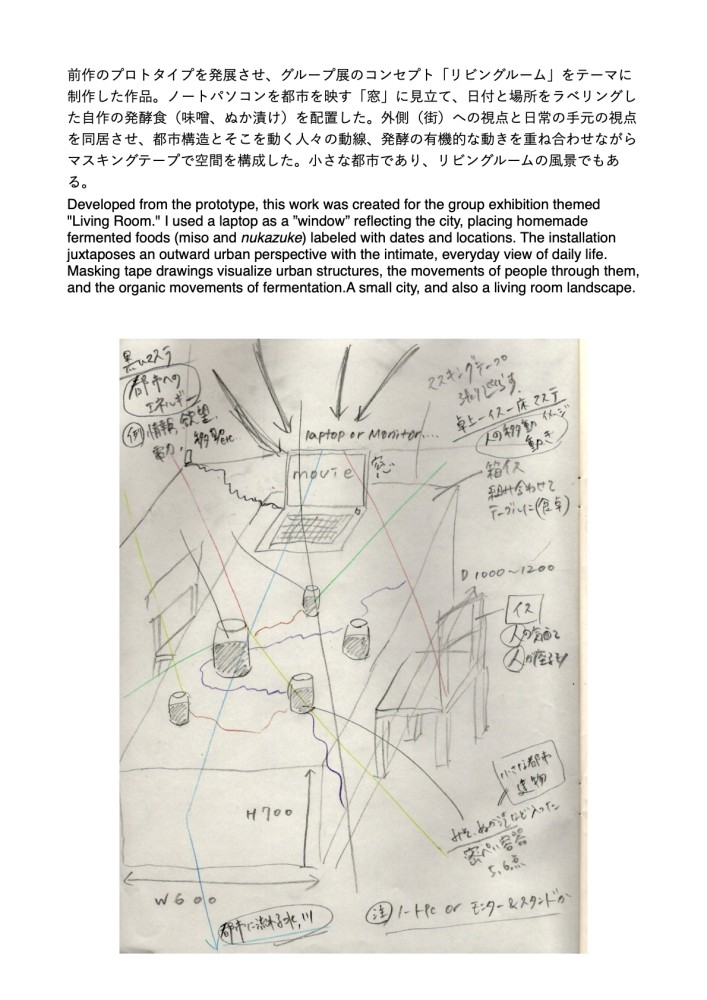 前作のプロトタイプを発展させ、グループ展のコンセプト「リビングルーム」をテーマに
制作した作品。ノートパソコンを都市を映す「窓」に見立て、日付と場所をラベリングし
た自作の発酵食（味噌、ぬか漬け）を配置した。外側（街）への視点と日常の手元の視点
を同居させ、都市構造とそこを動く人々の動線、発酵の有機的な動きを重ね合わせながら
マスキングテープで空間を構成した。小さな都市であり、リビングルームの風景でもあ
る。
Developed from the prototype, this work was created for the group exhibition themed
"Living Room." I used a laptop as a ”window” reflecting the city, placing homemade
fermented foods (miso and nukazuke) labeled with dates and locations. The installation
juxtaposes an outward urban perspective with the intimate, everyday view of daily life.
Masking tape drawings visualize urban structures, the movements of people through them,
and the organic movements of fermentation.A small city, and also a living room landscape.
黒いマステ
都市への
エネルギー
例 情報、欲望、
電力、
マスキングテープ
卓上ーイスー床 マステ
人の移動 イメージ
動き
laptop or Monitor....
movie
窓
箱イス
組み合わせて
テーブルに(食卓)
D 1000〜1200
イス
小さな都市
建物
みそ、ぬか漬など入った
密ぺい容器
5,6点
H700
W600
都市に流れる水、川
注 ノートPC or モニター&スタンドか